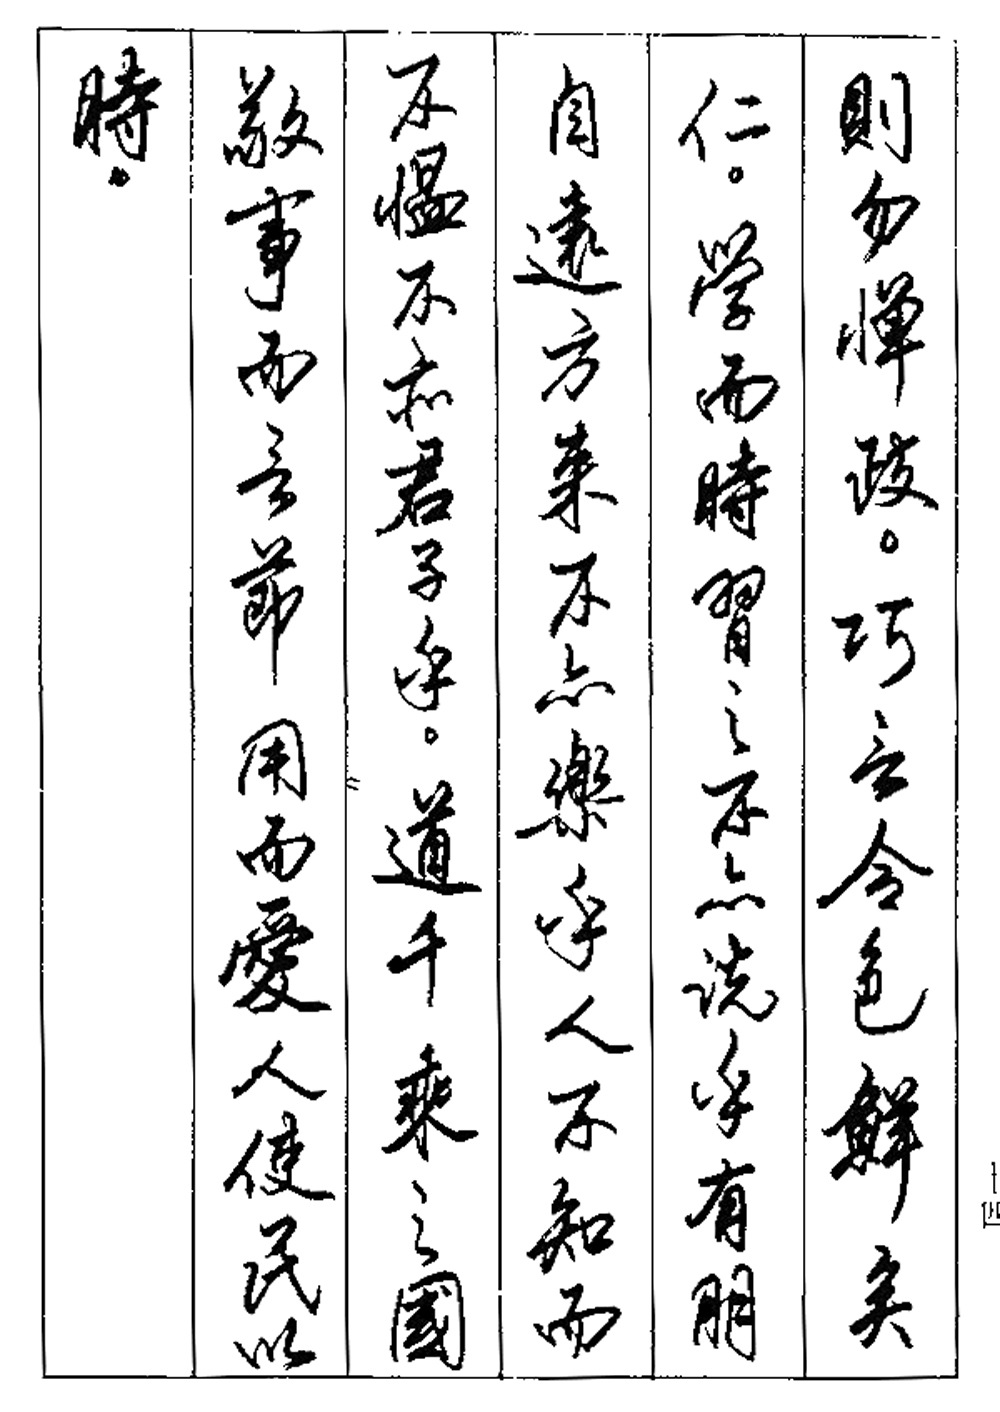 則勿憚改。巧言令色鮮矣
仁。学而時習之不亦説乎有朋
自遠方来不亦樂乎人不知而
不慍不亦君子乎。道千乗之國
敬事而言節用而愛人使民以
時。